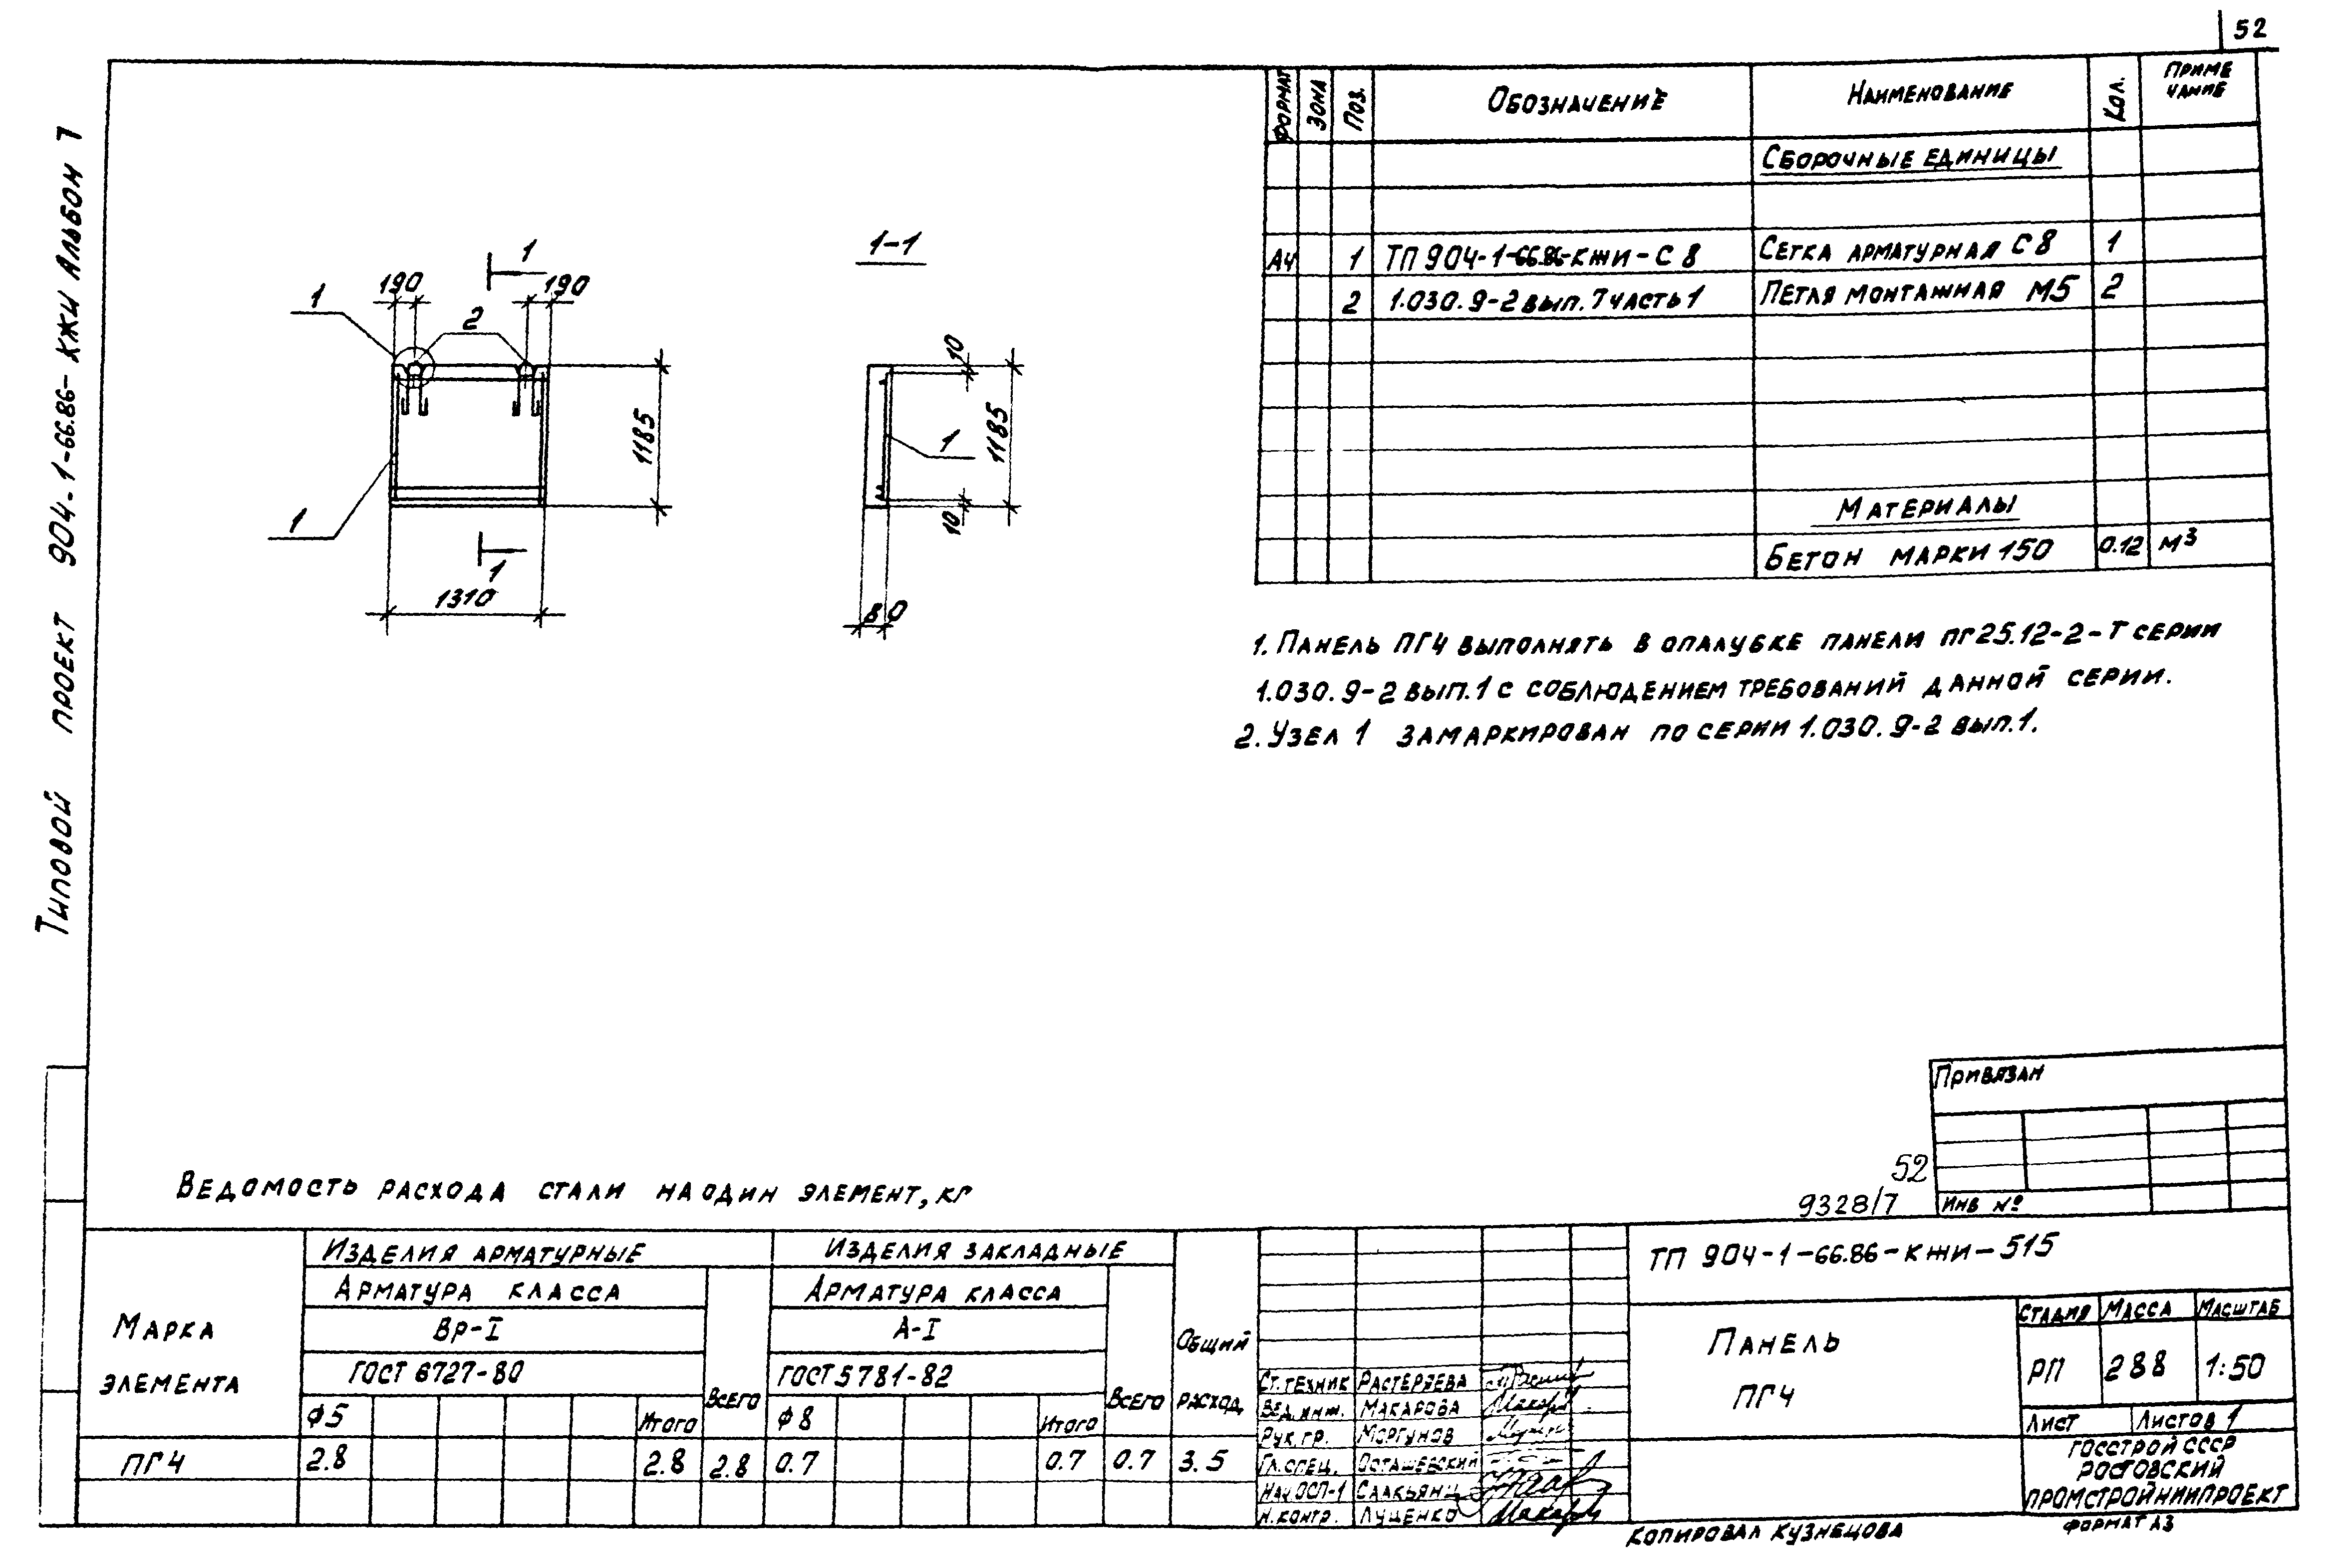 52
Типовой проект 904-1-66.86-КЖИ Альбом 7
1
1-1
190
190
1
2
1185
1
1
1310
10
1185
1
10
80
Формат
Зона
Поз.
Обозначение
Наименование
Кол.
Приме
чание
Сборочные единицы
А4 1 ТП 904-1-66.86-КЖИ-С8 Сетка арматурная С8 1
2 1.030.9-2 вып. 7 часть 1 Петля монтажная М5 2
Материалы
Бетон марки 150 0.12 м³
1. Панель ПГ4 выполнять в опалубке панели ПГ25.12-2-Т серии
1.030.9-2 вып.1 с соблюдением требований данной серии.
2. Узел 1 замаркирован по серии 1.030.9-2 вып.1.
Привязан
52
9328/7
Инв №
Ведомость расхода стали на один элемент, кг
Марка
элемента
Изделия арматурные
Изделия закладные
Арматура класса
Арматура класса
Вр-I
А-I
ГОСТ 6727-80
ГОСТ 5781-82
Общий
расход
Ф5 Итого Всего Ф8 Итого Всего
ПГ4 2.8 2.8 2.8 0.7 0.7 0.7 3.5
Ст.техник Растеряева
Вед.инж. Макарова
Рук.гр. Моргунов
Гл.спец. Осташевский
Нач ОСП-1 Саакьянц
Н.контр. Луценко
ТП 904-1-66.86-КЖИ-515
Панель
ПГ4
Стадия Масса Масштаб
РП 288 1:50
Лист Листов 1
Госстрой СССР
Ростовский
Промстройниипроект
Копировал Кузнецова
Формат А3